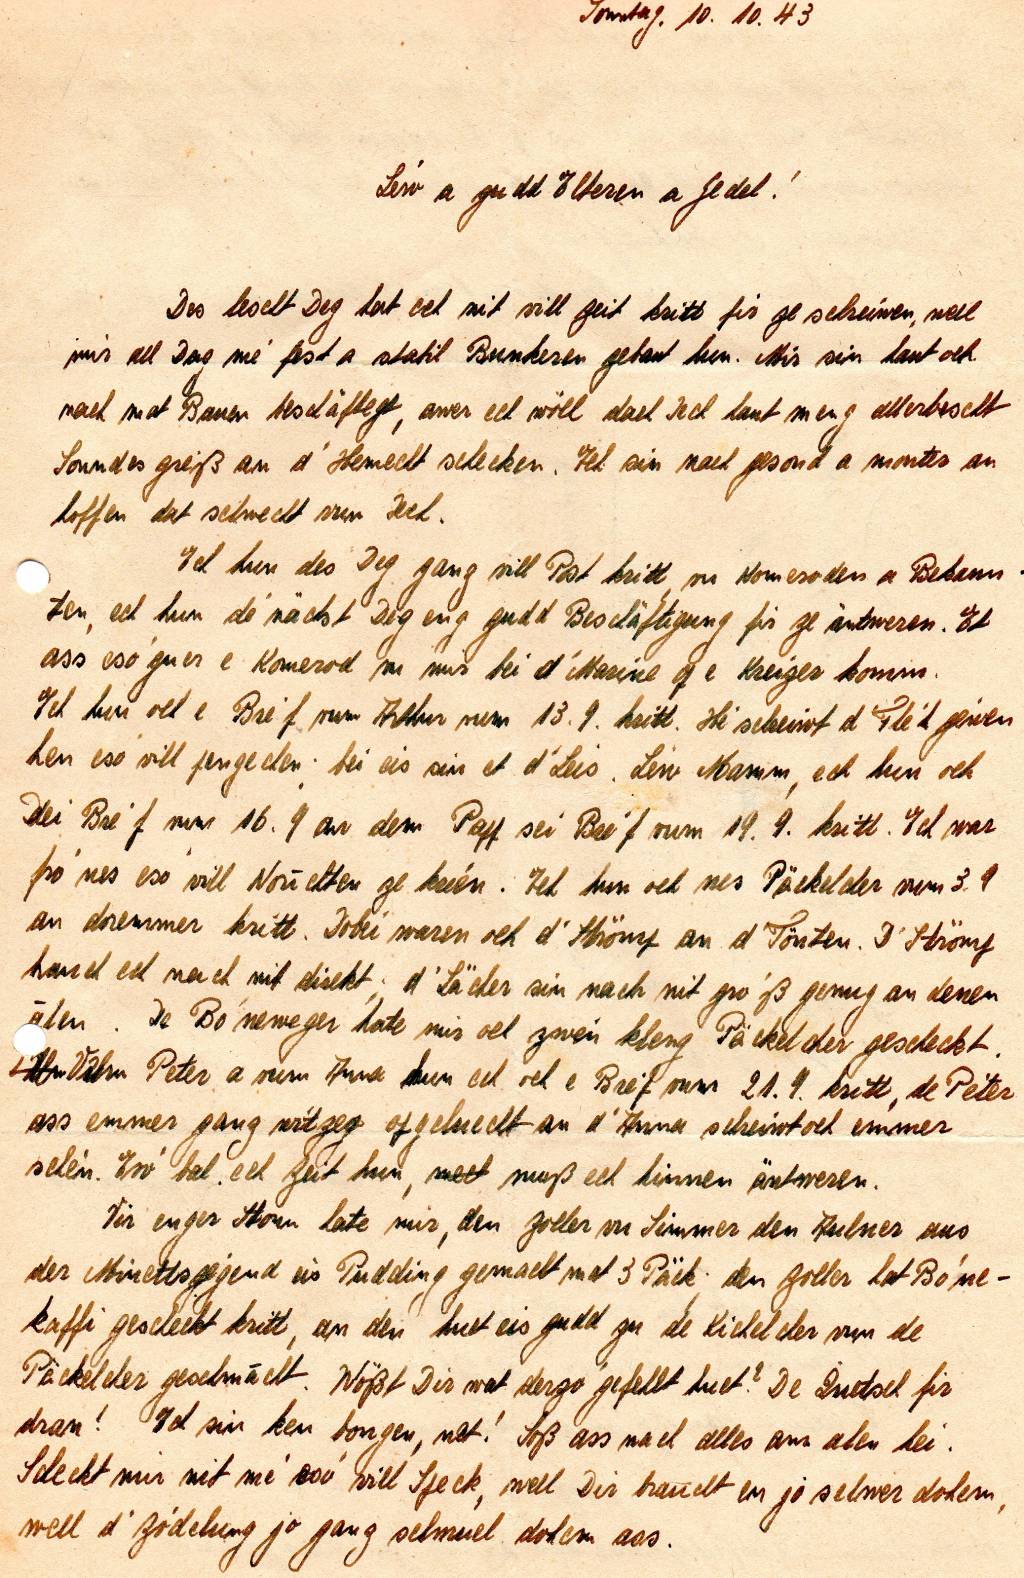 Sonndag, 10. 10. 43
Léw a gudd Elteren a Jedel!
Des lescht Deg hat ech nit vill Zeit kritt fir ze schreiwen, well
mir all Dag mé fest a stahl Bunkeren gebaut hun. Mir sin haut och
nach mat Bauen beschäftegt, awer ech wöll dach Iech haut meng allerbescht
Sonndesgreiß an d'Hemecht schecken. Ech sin nach gesond a monter an
hoffen dat selwecht vun Iech.
Ech hun des Deg gang vill Post kritt, vu Komeroden a Bekann-
ten, ech hun dé nächst Deg eng gudd Beschäftigung fir ze äntweren. Et
ass esóguer e Komerod vu mir bei d'Marine of e Kreizer komm.
Ech hun och e Bréf vum Arthur vum 13. 9. kritt. Hé schreiwt d'Fléh géwen
hen esó vill pengechen; bei eis sin et d'Leis. Léw Mamm, ech hun och
Dei Bréf vum 16. 9 an dem Papp sei Bréf vum 19. 9. kritt. Ech war
fró nes esó vill Noüchten ze kréen. Ech hun och nes Päckelcher vum 3. 9
an doremmer kritt. Dobei waren och d'Strömp an d'Tönten. D'Strömp
hauch ech nach nit direkt; d'Lächer sin nach nit gróß genug an denen
älen. De Bóneweger hate mir och zwéi kleng Päckelcher gescheckt.
Vum Peter a vum Anna hun ech och e Bréf vum 21. 9. kritt, de Péter
ass emmer gang witzeg ofgeluecht an d'Anna schreiwt och emmer
schén. Esó bal ech Zeit hun, muß ech hinnen äntweren.
Vir enger Stonn hate mir, den Zoller vu Simmer den Hubner aus
der Minettsgegend eis Pudding gemacht mat 3 Päck; den Zoller hat Bóne-
kaffi gescheckt kritt, an den huet eis gudd zu dé Kichelcher vun de
Päckelcher geschmācht. Wößt Dir wat derzó gefehlt huet? De Quetsch fir
dran! Ech sin ken hongen, nét! Soß ass nach alles am alen hei.
Scheckt mir nit mé esó vill Speck, well Dir braucht en jo selwer dohem,
well d'Zódelung jo gang schmuel dohem ass.